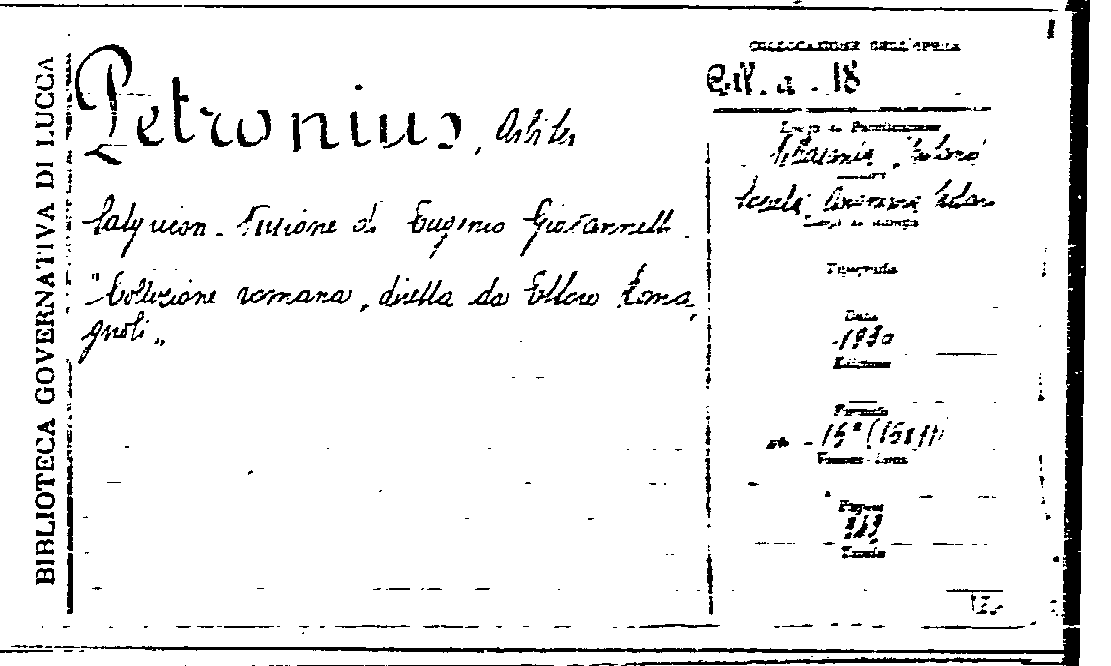 BIBLIOTECA GOVERNATIVA DI LUCCA
Petronius, Arbiter
Satyricon. Versione di Eugenio Giovannetti.
"Collezione romana, diretta da Ettore Roma,
gnoli„
COLLOCAZIONE DELL'OPERA
Coll. a. 18
Luogo di Pubblicazione
Società Anonima
Luogo di stampa
Tipografia
Data
1930
Edizione
Formato
16° (16x11)
Pagine
Tavole